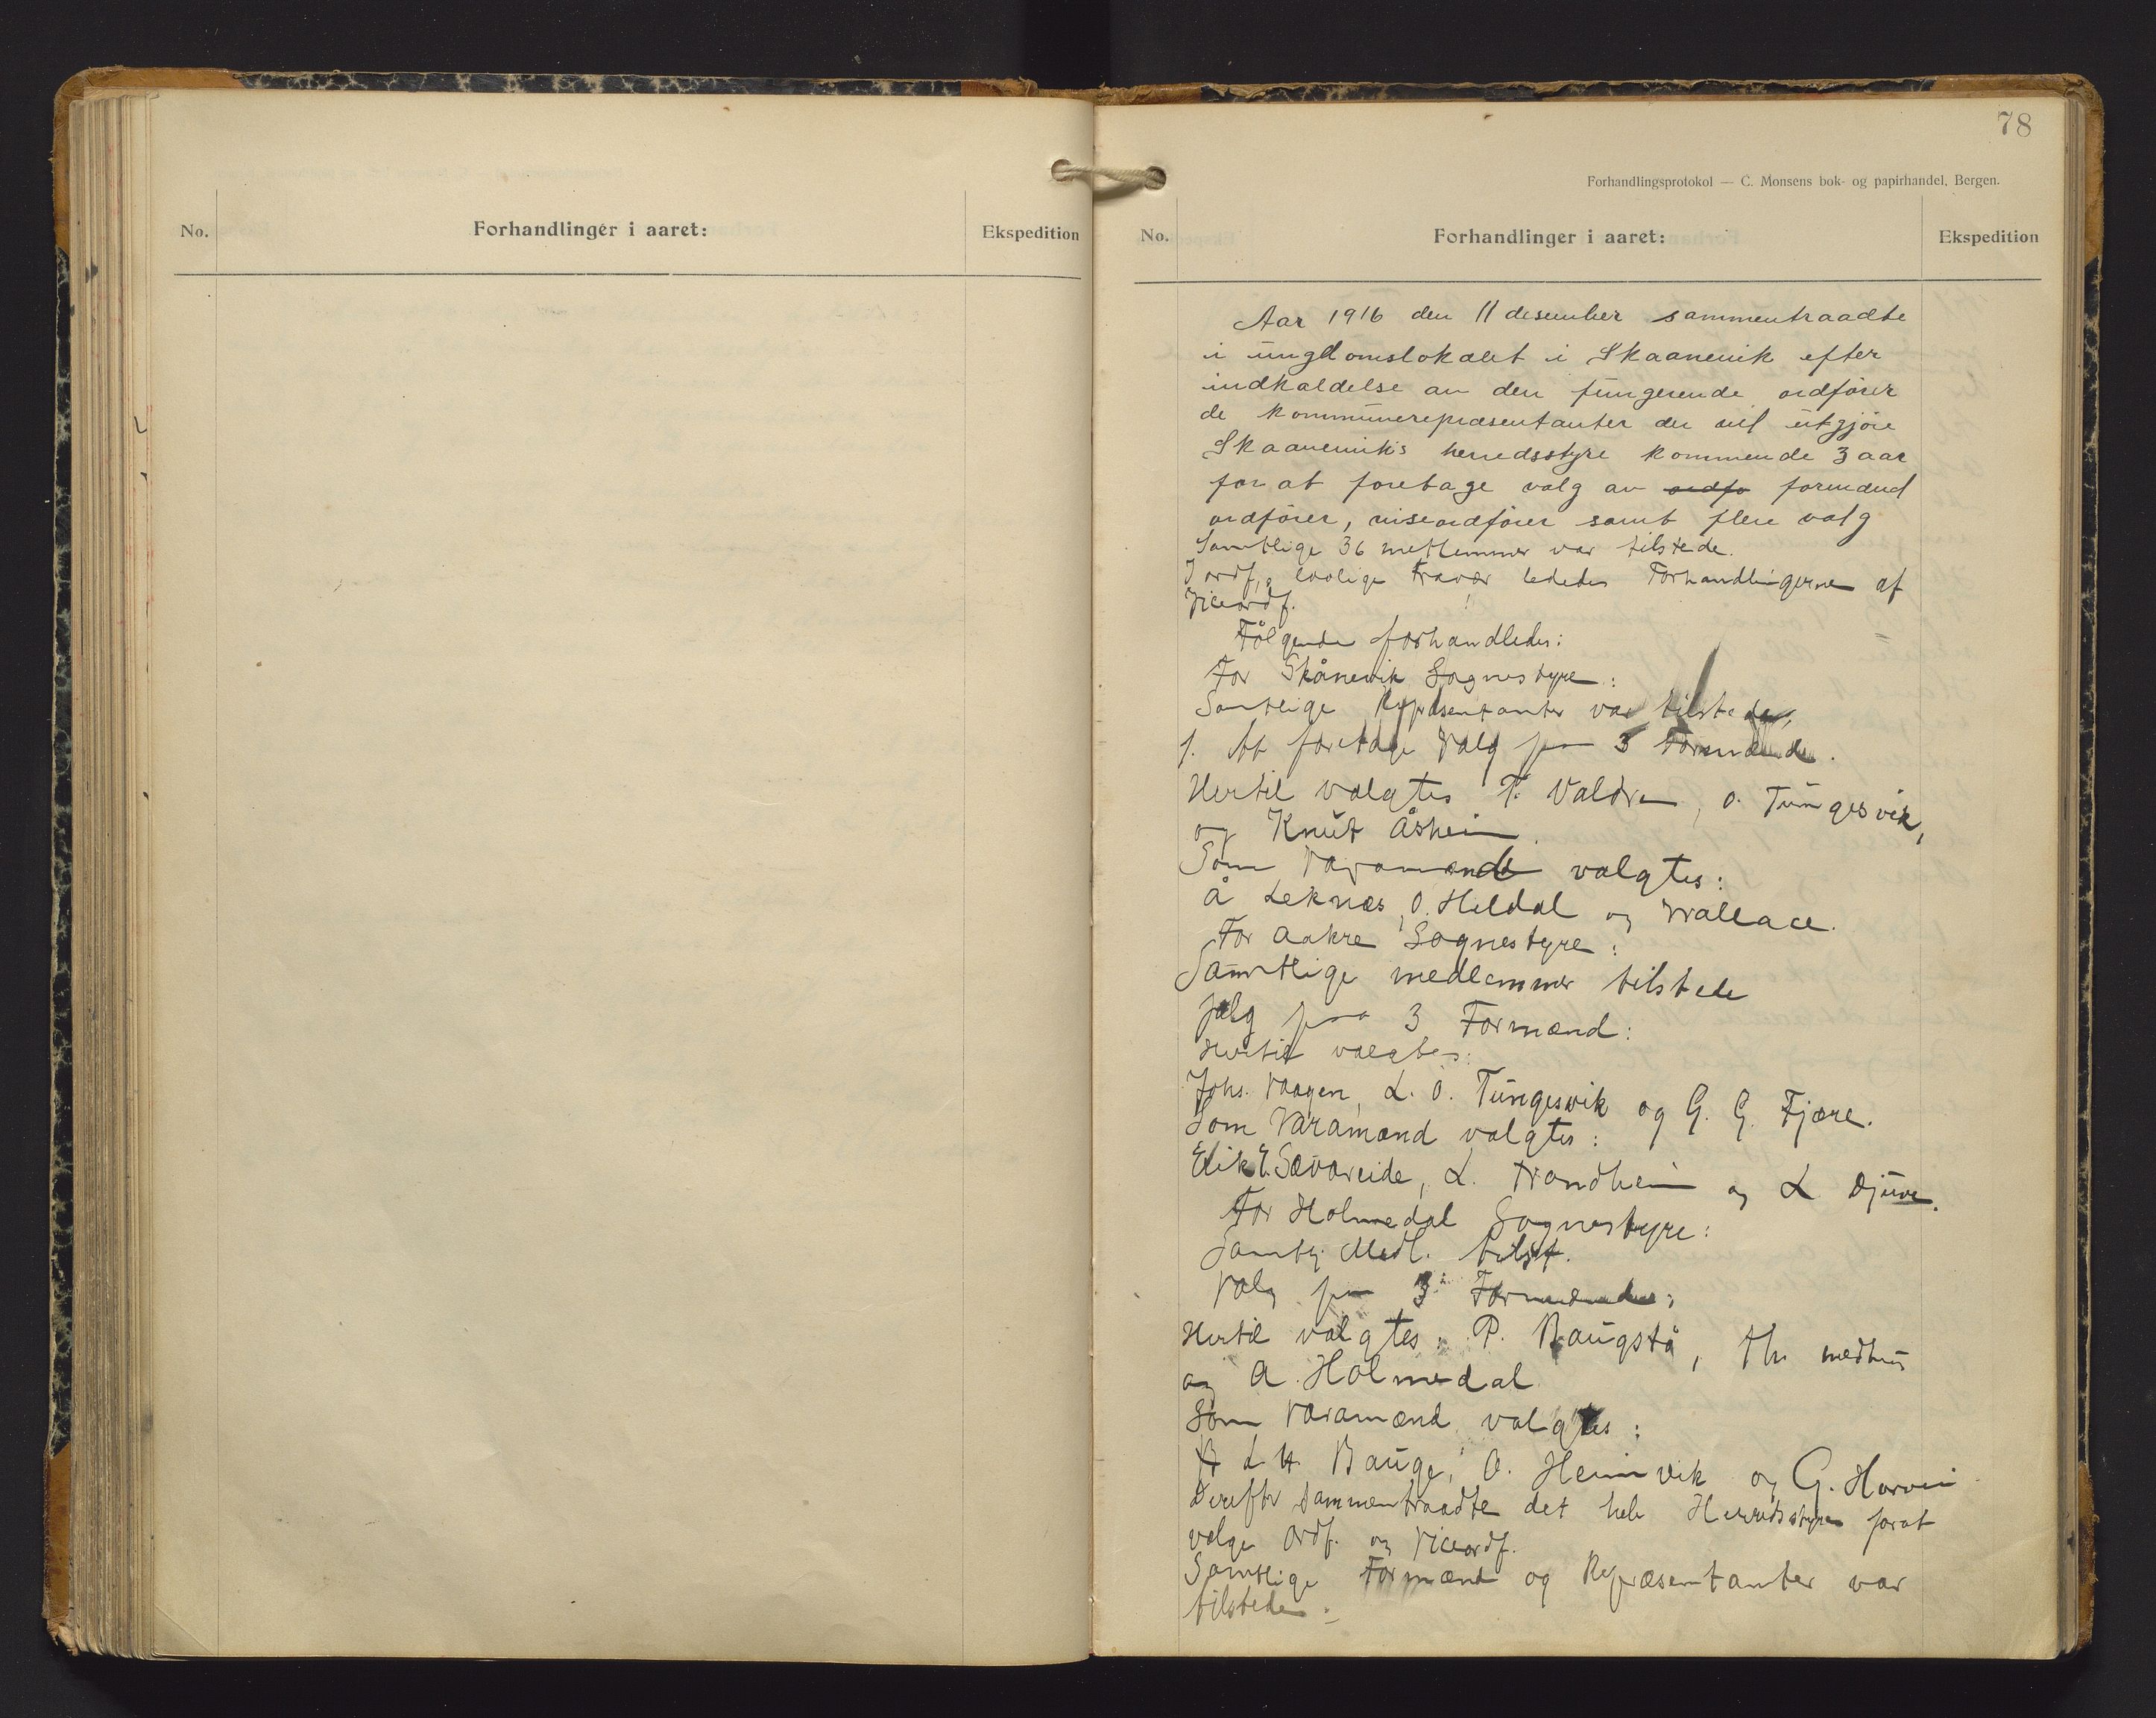 No.
Forhandlinger i aaret:
Ekspedition
78
Forhandlingsprotokol — C. Monsens bok- og papirhandel, Bergen.
No.
Forhandlinger i aaret:
Ekspedition
Aar 1916 den 11 desember sammentraadte
i ungdomslokalet i Skaanevik efter
indkaldelse av den fungerende ordfører
de kommunerepræsentanter der vil utgjøre
Skaaneviks herredsstyre kommende 3 aar
for at foretage valg av ordfø formænd
ordfører, viseordfører samt flere valg
Samtlige 36 metlemmer var tilstede.
I ordf,s lovlige Fravær lededes Forhandlingerne af
Viceordf.
Følgende forhandledes:
For Skånevik Sognestyre:
Samtlige Repræsentanter var tilstede,
1. At foretage Valg paa 3 Formænd.
Hertil valgtes T. Valdra, O. Tungesvik,
og Knut Åsheim.
Som Varamænd valgtes:
Å Leknes, O. Heldal og Wallace.
For Aakre Sognestyre:
Samtlige medlemmer tilstede
Valg paa 3 Formænd:
Hertil valgtes:
Johs. Vaagen, L. O. Tungesvik og G. G. Fjære.
Som Varamænd valgtes:
Erik E. Sævareide, L. Trondheim og L Djuve.
For Holmedal Sognestyre:
Samtl. Medl. tilst.
Valg paa 3 Formænd;
Hertil valgtes: P. Baugstå, Th. medhus
og A. Holmedal
Som Varamænd valgtes:
L H. Bauge, O. Heimvik og G. Horvei
Derefter sammentraadte det hele Herredsstyre forat
vælge Ordf. og Viceordf.
Samtlige Formænd og Repræsentanter var
tilstede: